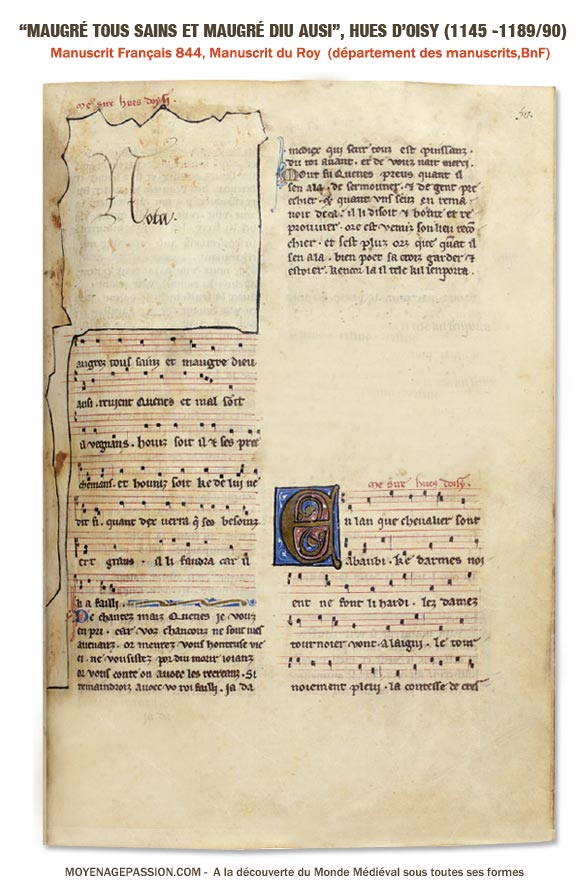 “MAUGRÉ TOUS SAINS ET MAUGRÉ DIU AUSI”, HUES D’OISY (1145 -1189/90)
Manuscrit Français 844, Manuscrit du Roy (département des manuscrits,BnF)
me sire hues doisy.
50.
Nota.
augrez tous sainz et maugre dieu
ausi . revient Quenes et mal soit
il vegnans . houniz soit il & ses pree
chemans . et houniz soit ke de lui ne
dit fi . quant dex verra q̃ ses besoinz
ert grans . il li faudra car il
li a failli .
De chantez mais Quenes je vouz
en pri . car voz chancons ne sont mes
avenanz . or menrez vous honteuse vie
ci . ne vousistez por diu morir joianz
or vous conte on avoec les recreanz . Si
remaindroiz avoec vo roi failli . ja da
medex qui seur touz est puissanz .
du roi avant . et de vouz nait merci .
Mout fu Quenes preus quant il
sen ala . de sermouner . & de gent pre
echier . & quant uns seus en rema
noit deca . il li disoit & honte et re
prouvier . ore est venuz son lieu reco
chier . et sest pluz orz que quant il
sen ala . bien poet sa croiz garder &
estoier . kencor la il tele kil lenporta .
me sire hues doisy .
En lan que chevalier sont
Abaubi . ke darmes noi
ent ne font li hardi . les damez
tournoier vont a laigni . le tour
noiement plevi . la contesse de cres
MOYENAGEPASSION.COM - A la découverte du Monde Médiéval sous toutes ses formes